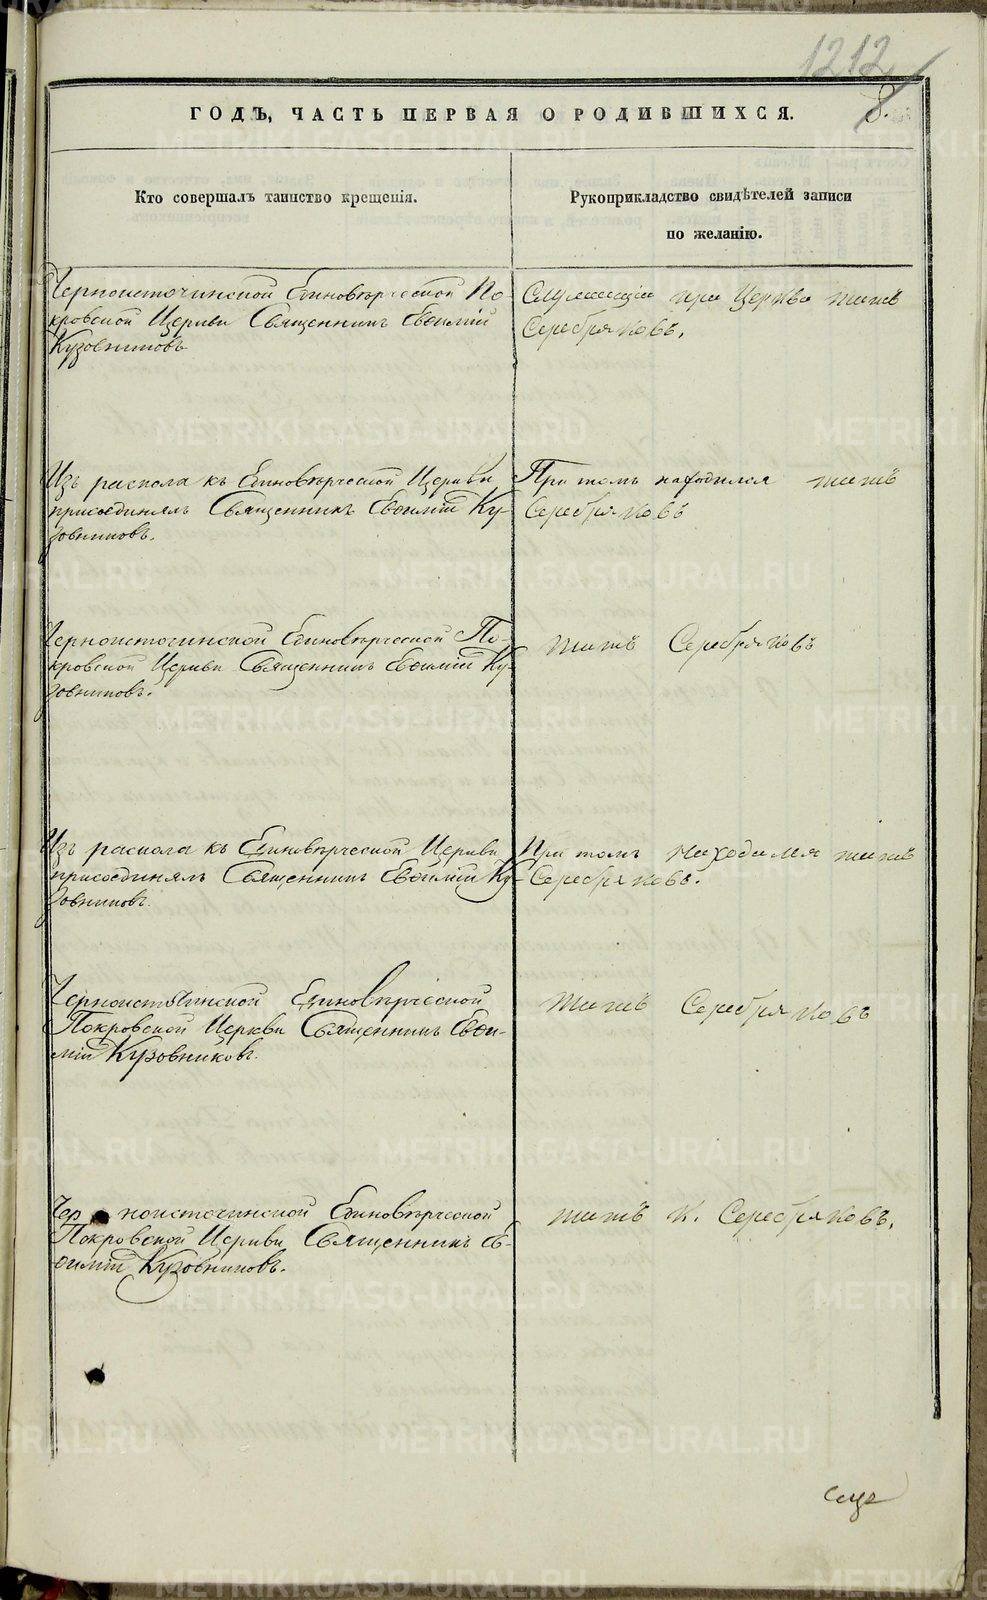 1212
8.
ГОДЪ, ЧАСТЬ ПЕРВАЯ О РОДИВШИХСЯ.
Кто совершалъ таинство крещенія.
Рукоприкладство свидѣтелей записи
по желанію.
Черноисточинской Единовѣрческой По-
кровской Церкви Священникъ Евѳимій
Кузовниковъ
Служащій при Церкви
Серебряковъ.
Изъ раскола къ Единовѣрческой Церкви
присоединялъ Священникъ Евѳимій Ку-
зовниковъ.
При томъ находился
Серебряковъ
Черноисточинской Единовѣрческой По-
кровской Церкви Священникъ Евѳимій Ку-
зовниковъ.
Серебряковъ
Изъ раскола къ Единовѣрческой Церкви
присоединялъ Священникъ Евѳимій Ку-
зовниковъ.
При томъ находился
Серебряковъ.
Черноисточинской Единовѣрческой
Покровской Церкви Священникъ Евѳи-
мій Кузовниковъ.
Серебряковъ
Черноисточинской Единовѣрческой
Покровской Церкви Священникъ Ев-
ѳимій Кузовниковъ.
К. Серебряковъ.
METRIKI.GASO-URAL.RU